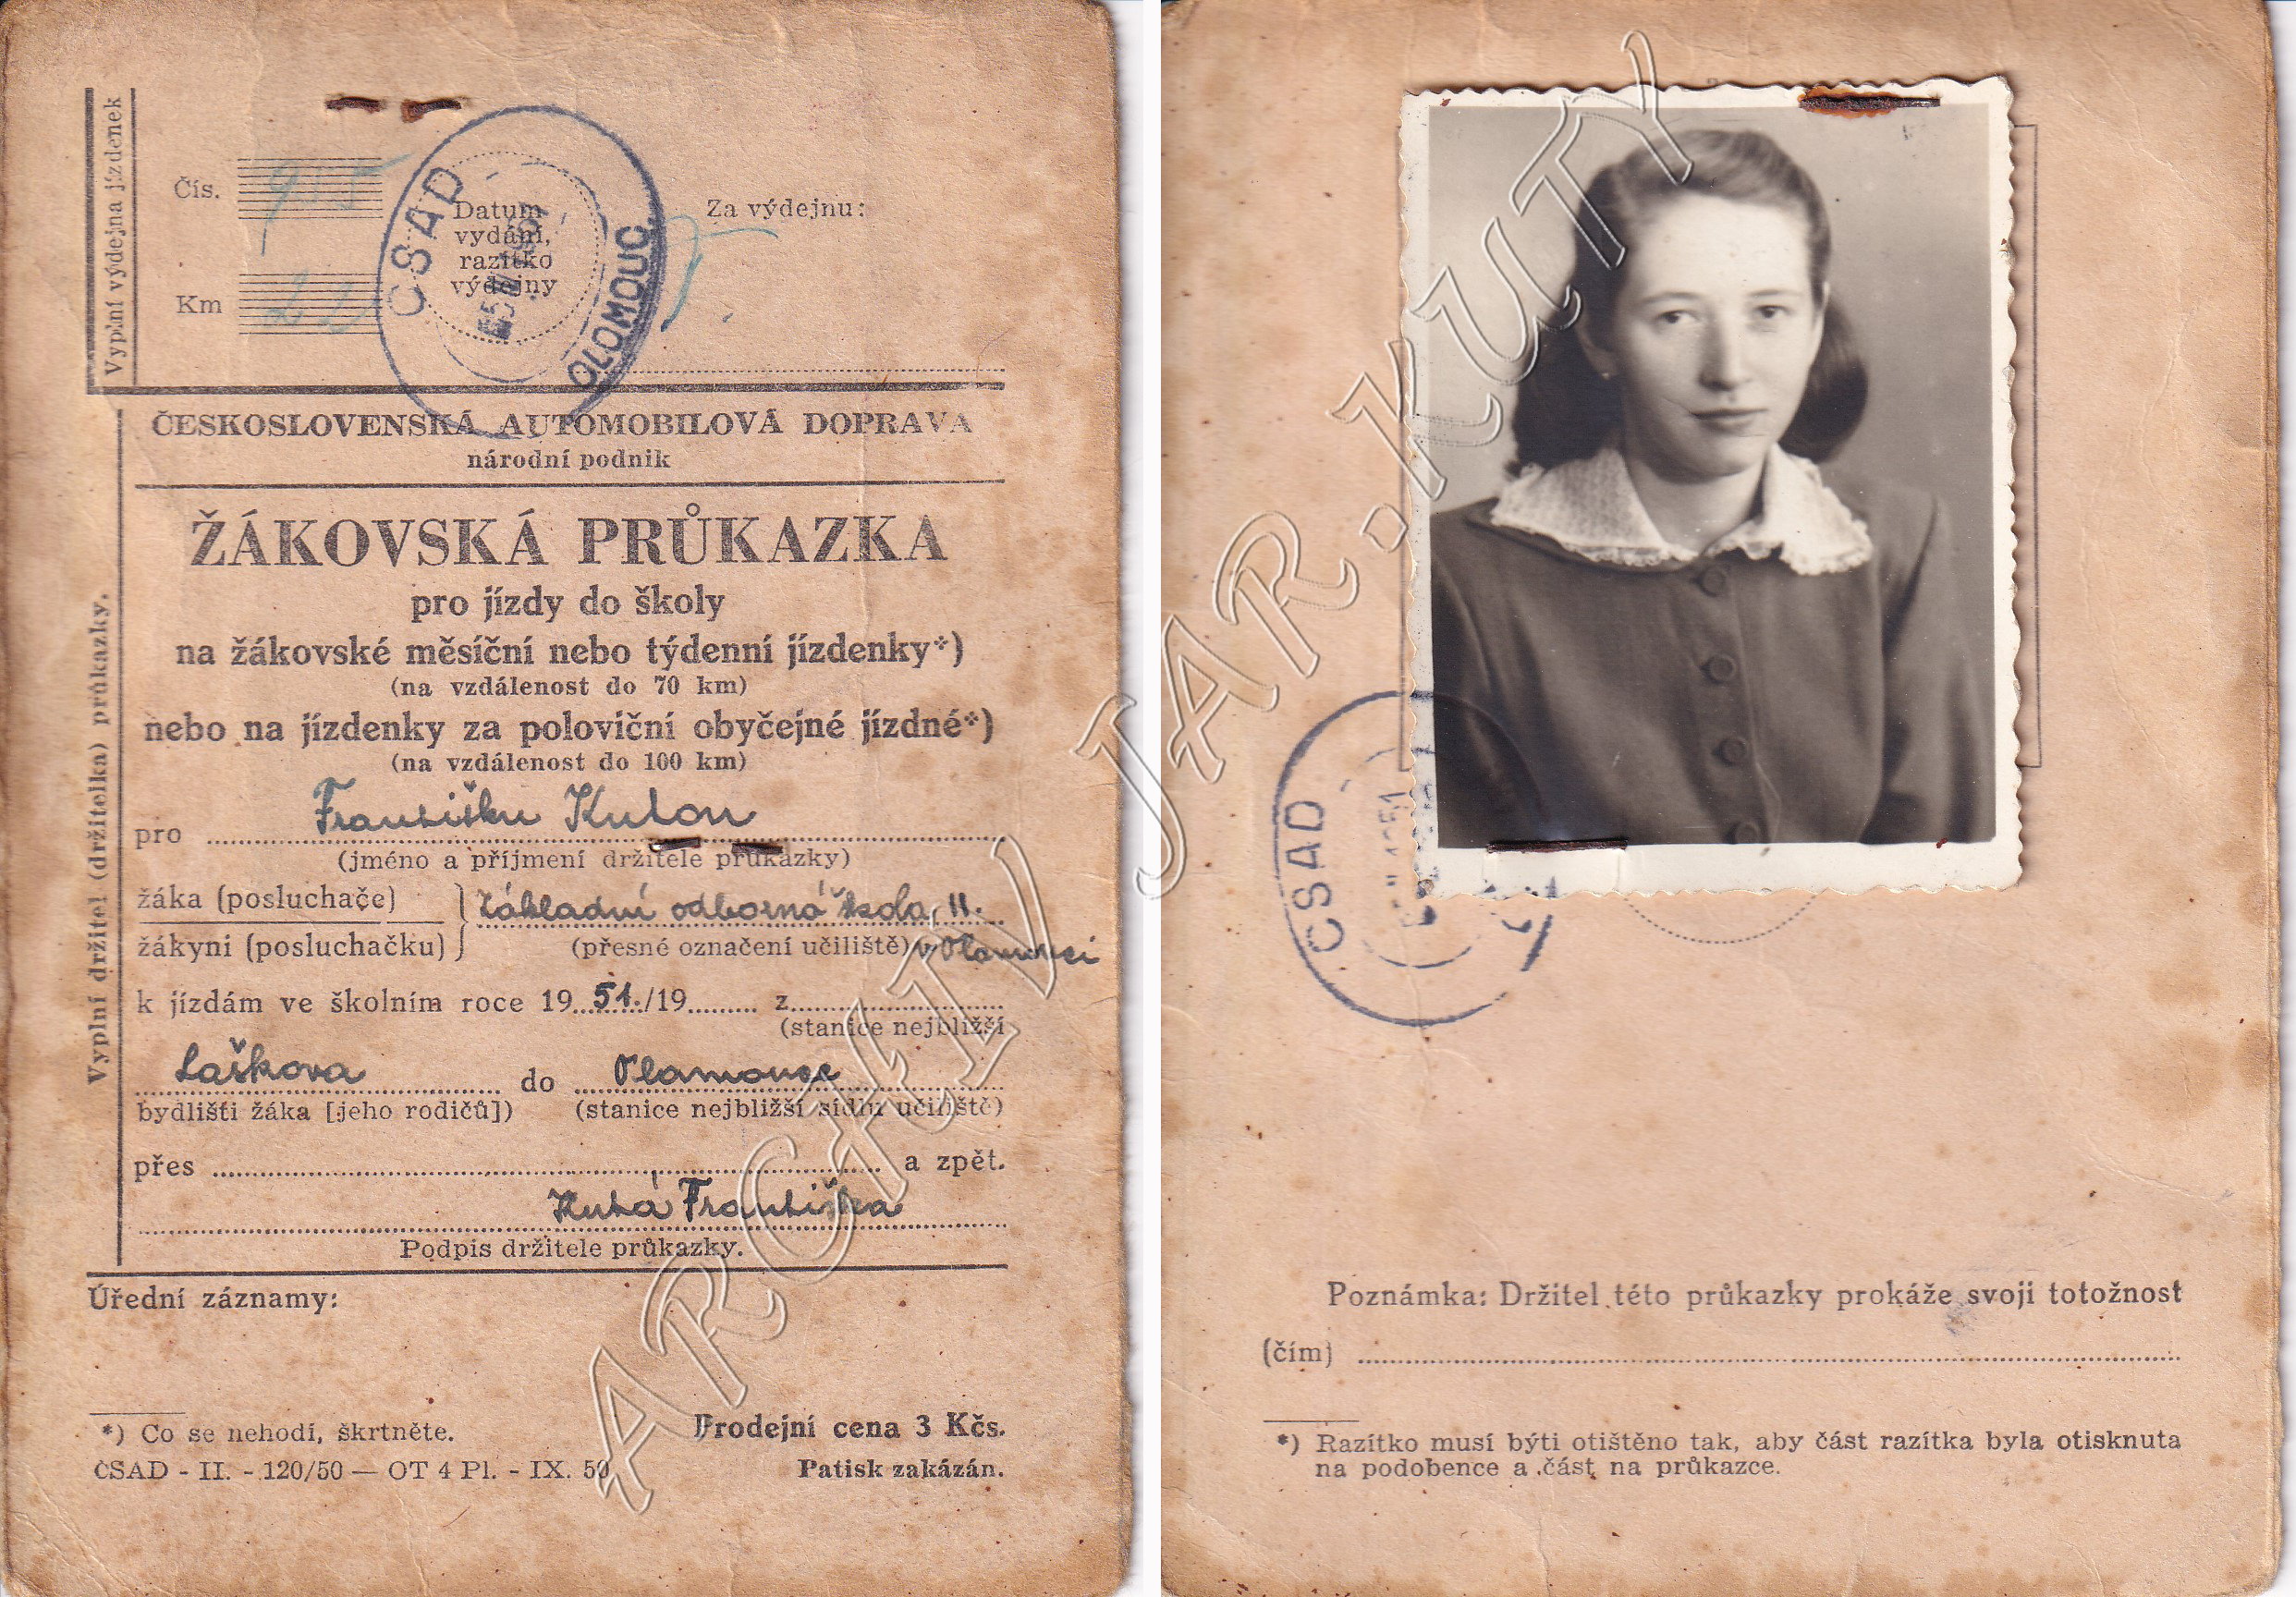 Vyplní výdejna jízdenek
Čís. 955
Km 22
ČSAD
OLOMOUC
Datum
vydání,
razítko
výdejny
Za výdejnu:
ČESKOSLOVENSKÁ AUTOMOBILOVÁ DOPRAVA
národní podnik
Vyplní držitel (držitelka) průkazky.
ŽÁKOVSKÁ PRŮKAZKA
pro jízdy do školy
na žákovské měsíční nebo týdenní jízdenky*)
(na vzdálenost do 70 km)
nebo na jízdenky za poloviční obyčejné jízdné*)
(na vzdálenost do 100 km)
pro Františku Kutou
(jméno a příjmení držitele průkazky)
žáka (posluchače) Základní odborná škola, II.
žákyni (posluchačku) (přesné označení učiliště) v Olomouci
k jízdám ve školním roce 1951./19 z
(stanice nejbližší
Laškova do Olomouce
bydlišti žáka [jeho rodičů]) (stanice nejbližší sídlu učiliště)
přes a zpět.
Kutá Františka
Podpis držitele průkazky.
Úřední záznamy:
*) Co se nehodí, škrtněte. Prodejní cena 3 Kčs.
ČSAD - II. - 120/50 — OT 4 Pl. - IX. 50 Patisk zakázán.
ČSAD
Poznámka: Držitel této průkazky prokáže svoji totožnost
(čím)
*) Razítko musí býti otištěno tak, aby část razítka byla otisknuta
na podobence a část na průkazce.
ARCHIV JAR.KUTÝ